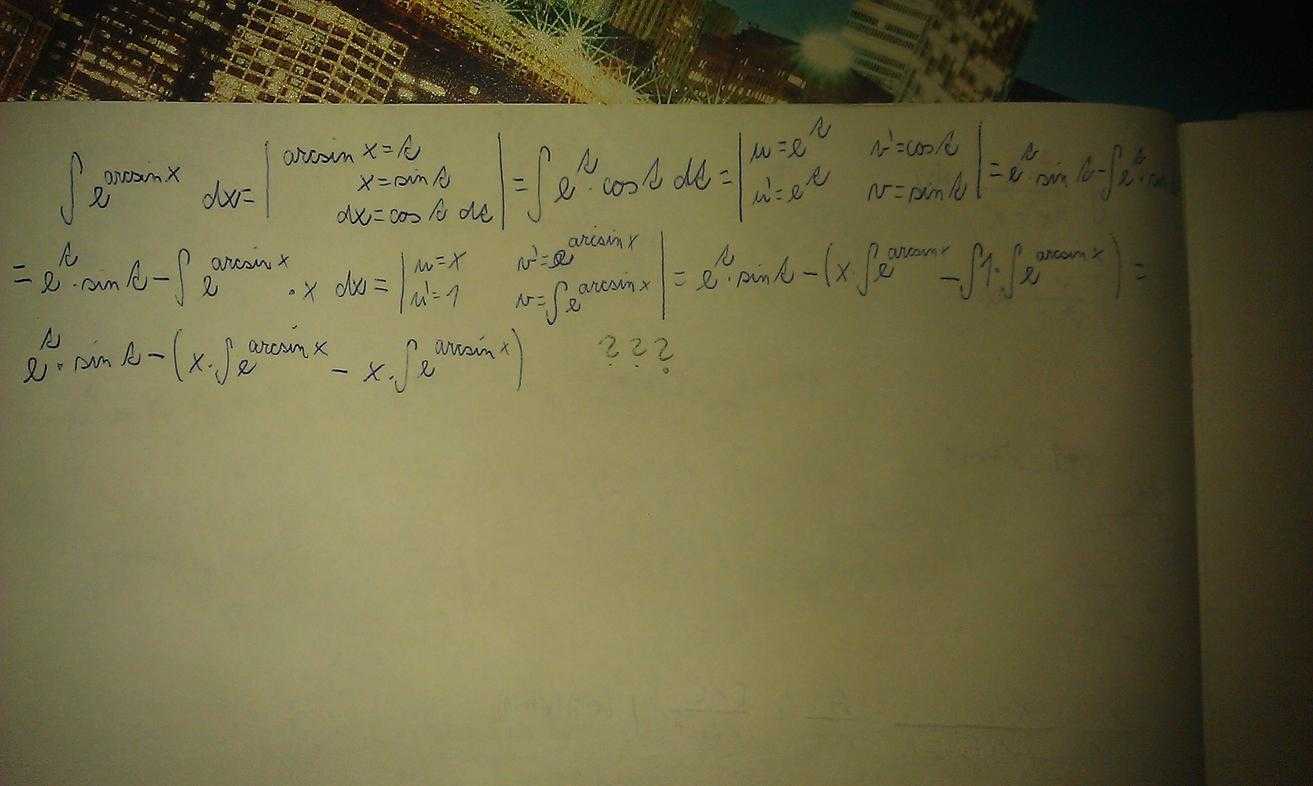 ∫ e^{arcsin x} dx = | arcsin x = t x = sin t dx = cos t dt | = ∫ e^t · cos t dt = | u = e^t v' = cos t u' = e^t v = sin t | = e^t · sin t − ∫ e^t · sin
= e^t · sin t − ∫ e^{arcsin x} · x dx = | u = x v' = e^{arcsin x} u' = 1 v = ∫ e^{arcsin x} | = e^t · sin t − (x · ∫ e^{arcsin x} − ∫ 1 · ∫ e^{arcsin x}) =
e^t · sin t − (x · ∫ e^{arcsin x} − x · ∫ e^{arcsin x}) ???